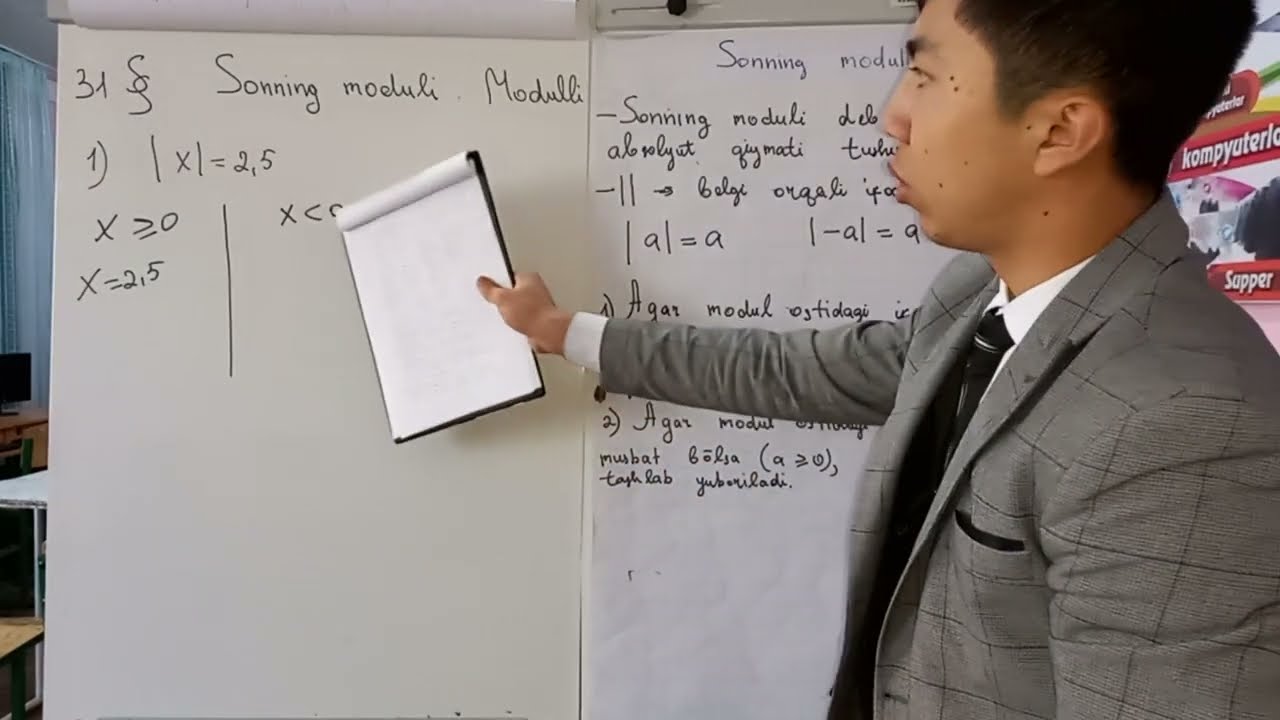 31 § Sonning moduli. Modulli
1) |x|=2,5
x ≥ 0
x=2,5
x <
Sonning
- Sonning moduli deb
absolyut qiymati
- || → belgi orqali
|a| = a
|-a| = a
1) Agar modul ostidagi
2) Agar modul ostidagi
musbat bōlsa (a ≥ 0),
tashlab yuboriladi.
kompyuterla
Supper